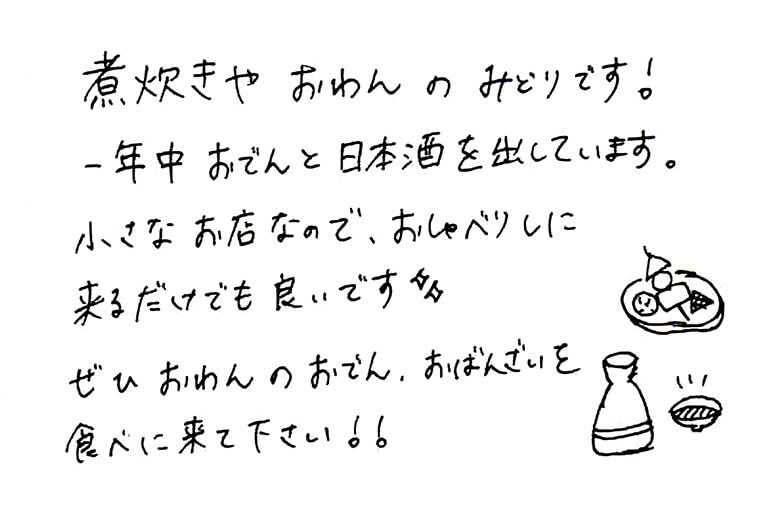 煮炊きや おわん の みどりです!
一年中 おでんと日本酒を出しています。
小さな お店なので、おしゃべりしに
来るだけでも 良いです
ぜひ おわん の おでん、おばんざいを
食べに来て下さい!!